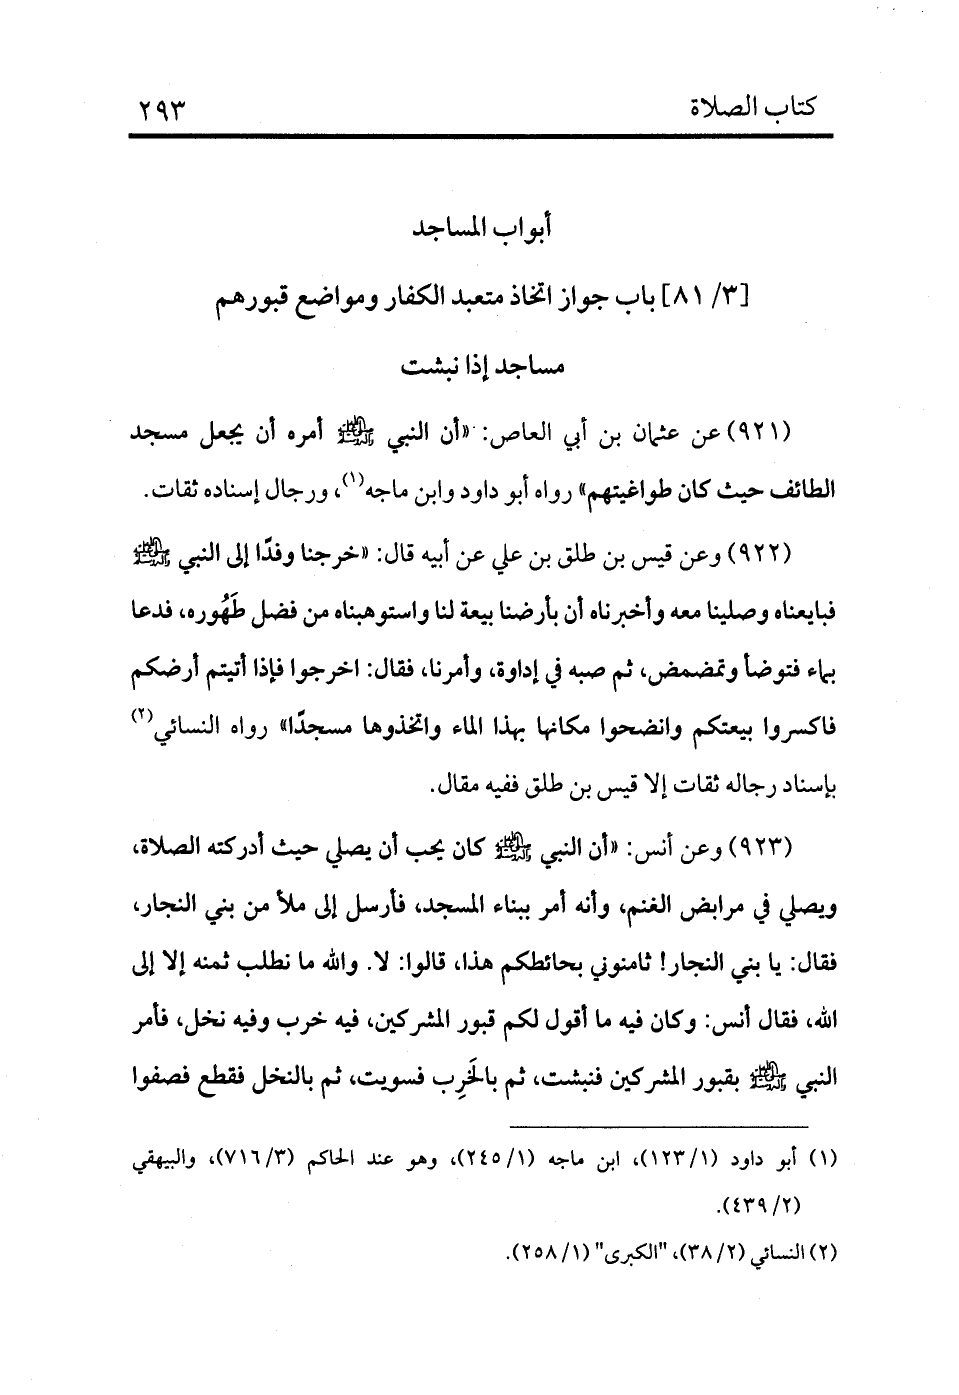 كتاب الصلاة ٢٩٣
أبواب المساجد
[٣/ ٨١] باب جواز اتخاذ متعبد الكفار ومواضع قبورهم
مساجد إذا نبشت
(٩٢١) عن عثمان بن أبي العاص: «أن النبي ﷺ أمره أن يجعل مسجد
الطائف حيث كان طواغيتهم» رواه أبو داود وابن ماجه(١)، ورجال إسناده ثقات.
(٩٢٢) وعن قيس بن طلق بن علي عن أبيه قال: «خرجنا وفدًا إلى النبي ﷺ
فبايعناه وصلينا معه وأخبرناه أن بأرضنا بيعة لنا واستوهبناه من فضل طَهُوره، فدعا
بماء فتوضأ وتمضمض، ثم صبه في إداوة، وأمرنا، فقال: اخرجوا فإذا أتيتم أرضكم
فاكسروا بيعتكم وانضحوا مكانها بهذا الماء واتخذوها مسجدًا» رواه النسائي(٢)
بإسناد رجاله ثقات إلا قيس بن طلق ففيه مقال.
(٩٢٣) وعن أنس: «أن النبي ﷺ كان يحب أن يصلي حيث أدركته الصلاة،
ويصلي في مرابض الغنم، وأنه أمر ببناء المسجد، فأرسل إلى ملأ من بني النجار،
فقال: يا بني النجار! ثامنوني بحائطكم هذا، قالوا: لا. والله ما نطلب ثمنه إلا إلى
الله، فقال أنس: وكان فيه ما أقول لكم قبور المشركين، فيه خرب وفيه نخل، فأمر
النبي ﷺ بقبور المشركين فنبشت، ثم بالخَرِب فسويت، ثم بالنخل فقطع فصفوا
(١) أبو داود (١/ ١٢٣)، ابن ماجه (١/ ٢٤٥)، وهو عند الحاكم (٣/ ٧١٦)، والبيهقي
(٢/ ٤٣٩).
(٢) النسائي (٢/ ٣٨)، "الكبرى" (١/ ٢٥٨).